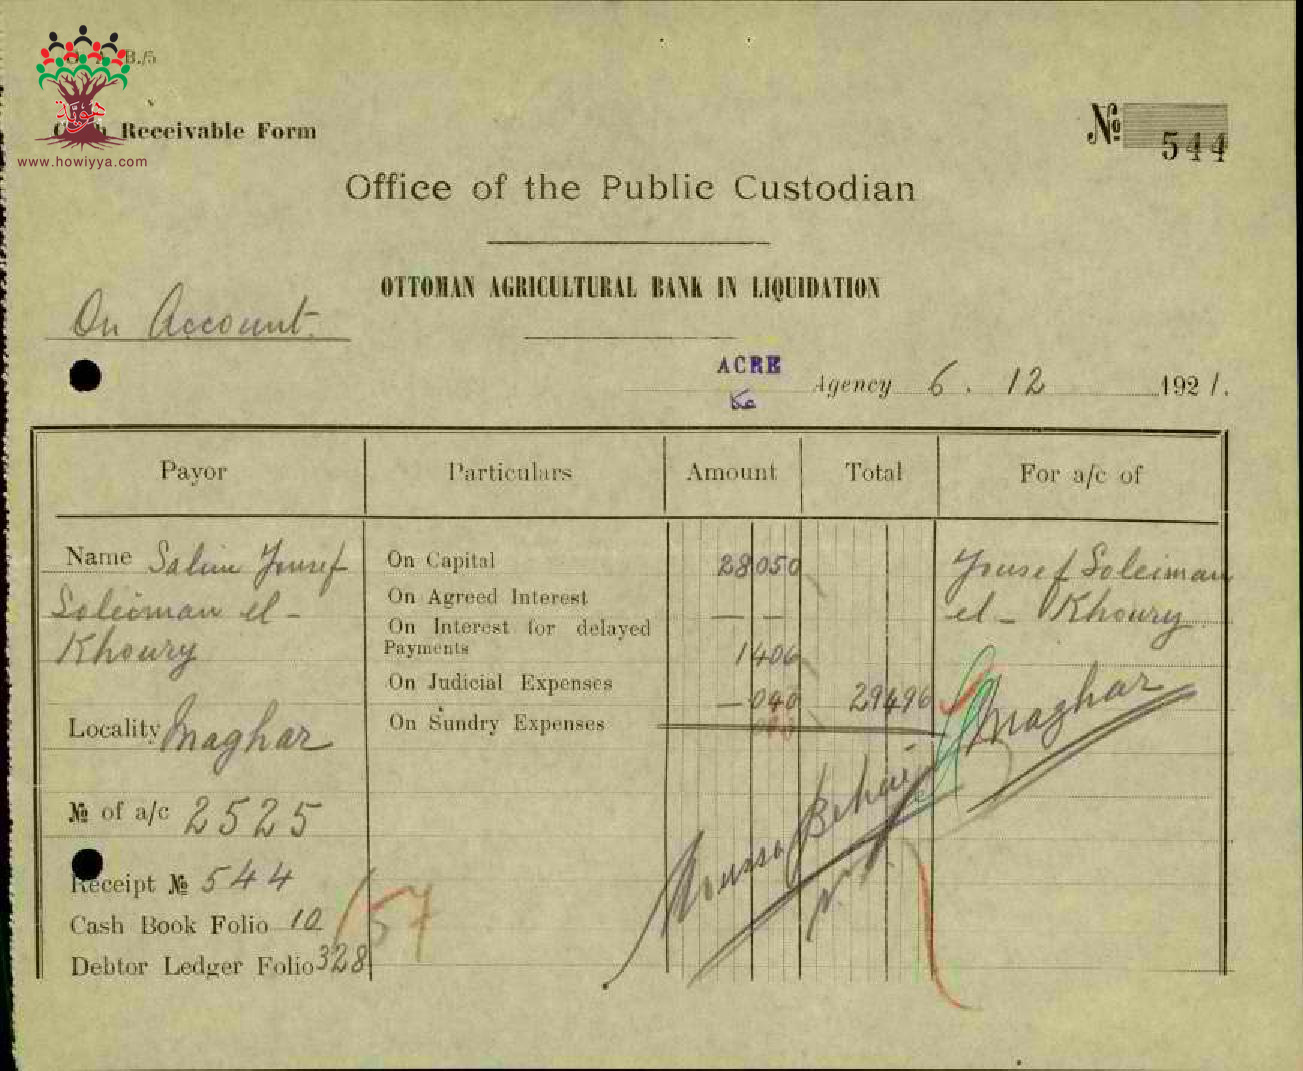 B./5
هوية
www.howiyya.com
Receivable Form
№ 544
Office of the Public Custodian
OTTOMAN AGRICULTURAL BANK IN LIQUIDATION
On Account.
ACRE
Agency 6. 12 1921.
Payor Particulars Amount Total For a/c of
Name Salim Yousef
Soleiman el-
Khoury
Locality Maghar
№ of a/c 2525
Receipt № 544
Cash Book Folio 10
157
Debtor Ledger Folio 328
On Capital 28 050
On Agreed Interest
On Interest for delayed — —
Payments 1 406
On Judicial Expenses — 040 29496
On Sundry Expenses
Yousef Soleiman
el- Khoury
Maghar